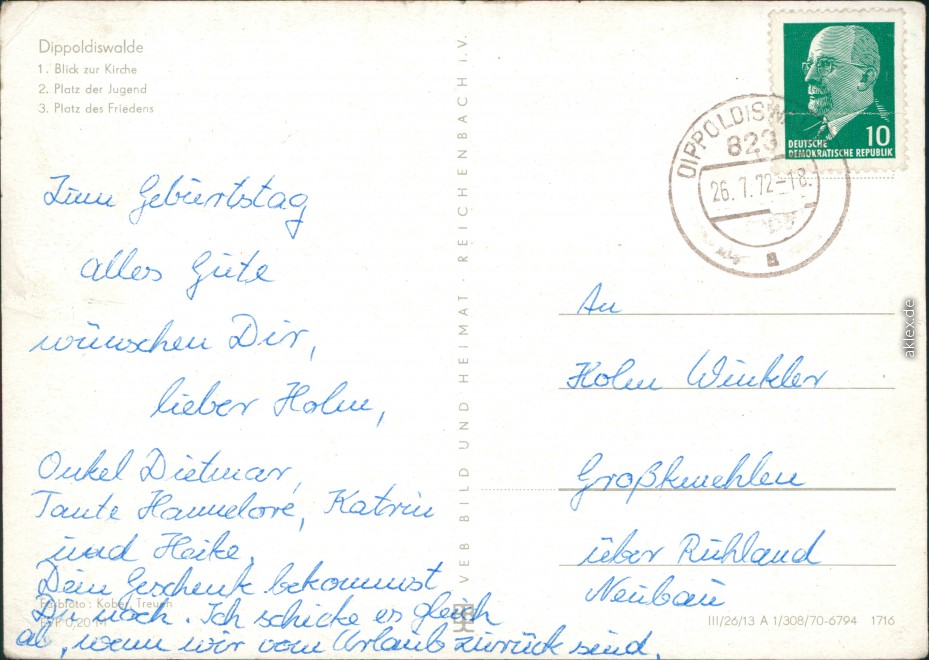 Dippoldiswalde
1. Blick zur Kirche
2. Platz der Jugend
3. Platz des Friedens
Zum Geburtstag
alles Gute
wünschen Dir,
lieber Holm,
Onkel Dietmar,
Tante Hannelore, Katrin
und Heike.
Dein Geschenk bekommst
Du noch. Ich schicke es gleich
ab, wenn wir vom Urlaub zurück sind.
Farbfoto: Kober, Treuen
EVP 0,20 M
VEB BILD UND HEIMAT · REICHENBACH i. V.
10
DEUTSCHE
DEMOKRATISCHE REPUBLIK
DIPPOLDISW
823
26.7.72-18
a
An
Holm Winkler
Großkmehlen
über Ruhland
Neubau
III/26/13 A 1/308/70-6794 1716
aklex.de